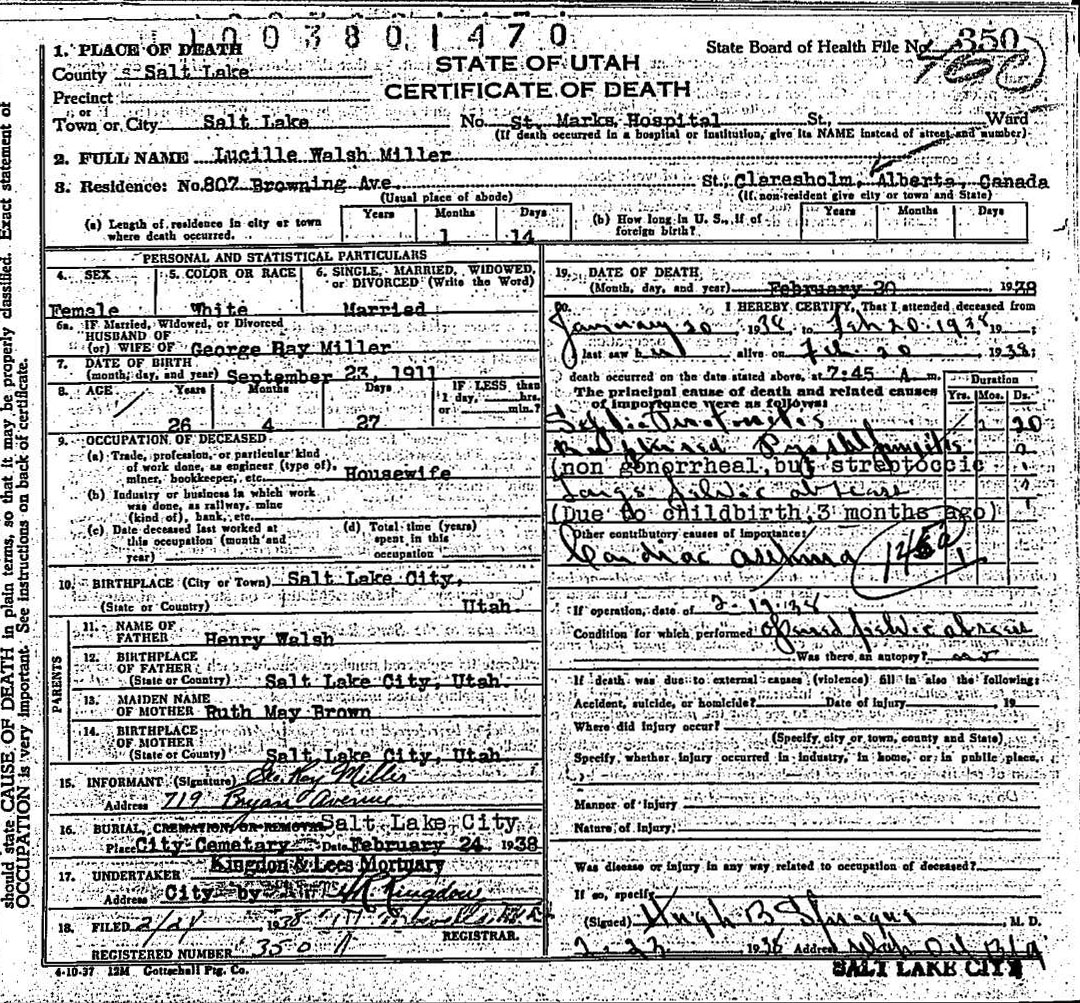 1 0 0 3 8 0 1 4 7 0
1. PLACE OF DEATH
State Board of Health File No. 350
County Salt Lake
STATE OF UTAH
CERTIFICATE OF DEATH
Precinct
or
Town or City Salt Lake No. St. Marks Hospital St., Ward
(If death occurred in a hospital or institution, give its NAME instead of street and number)
2. FULL NAME Lucille Walsh Miller
3. Residence: No. 807 Browning Ave. St., Claresholm, Alberta, Canada
(Usual place of abode) (If non-resident give city or town and State)
(a) Length of residence in city or town where death occurred. Years Months 1 Days 14
(b) How long in U. S., if of foreign birth? Years Months Days
PERSONAL AND STATISTICAL PARTICULARS
4. SEX 5. COLOR OR RACE 6. SINGLE, MARRIED, WIDOWED, or DIVORCED (Write the Word)
Female White Married
6a. IF Married, Widowed, or Divorced
HUSBAND OF
(or) WIFE OF George Ray Miller
7. DATE OF BIRTH
(month, day, and year) September 23, 1911
8. AGE Years Months Days IF LESS than
1 day, hrs.
or min.?
26 4 27
9. OCCUPATION OF DECEASED
(a) Trade, profession, or particular kind
of work done, as engineer (type of),
miner, bookkeeper, etc. Housewife
(b) Industry or business in which work
was done, as railway, mine
(kind of), bank, etc.
(c) Date deceased last worked at
this occupation (month and
year)
(d) Total time (years)
spent in this
occupation
10. BIRTHPLACE (City or Town) Salt Lake City,
(State or Country) Utah
PARENTS
11. NAME OF
FATHER Henry Walsh
12. BIRTHPLACE
OF FATHER
(State or Country) Salt Lake City, Utah.
13. MAIDEN NAME
OF MOTHER Ruth May Brown
14. BIRTHPLACE
OF MOTHER
(State or Country) Salt Lake City, Utah.
15. INFORMANT (Signature) Geo. Ray Miller
Address 719 Bryan Avenue
16. BURIAL, CREMATION, OR REMOVAL Salt Lake City
Place City Cemetary Date February 24 1938
Kingdon & Lees Mortuary
17. UNDERTAKER
Address City by Kingdon
18. FILED 2/24 1938
REGISTRAR.
REGISTERED NUMBER 350 A
4-10-37 12M Gottschall Ptg. Co.
19. DATE OF DEATH
(Month, day, and year) February 20 1938
20. I HEREBY CERTIFY, That I attended deceased from
January 20 1938 to Feb 20 1938 19
I last saw h er alive on Feb. 20 1938
death occurred on the date stated above, at 7:45 A m.
The principal cause of death and related causes
of importance were as follows:
Duration
Yrs. Mos. Ds.
Septic Peritonitis 20
(non gonorrheal, but streptoccic
Large pelvic abscess
(Due to childbirth, 3 months ago)
Other contributory causes of importance:
Cardiac asthma 1
If operation, date of 2-19-38
Condition for which performed Opened pelvic abscess
Was there an autopsy? no
If death was due to external causes (violence) fill in also the following:
Accident, suicide, or homicide? Date of injury 19
Where did injury occur?
(Specify city or town, county and State)
Specify whether injury occurred in industry, in home, or in public place.
Manner of Injury
Nature of Injury
Was disease or injury in any way related to occupation of deceased?
If so, specify
(Signed) Hugh B Sprague M. D.
2-23 1938 Address
SALT LAKE CITY
should state CAUSE OF DEATH in plain terms, so that it may be properly classified. Exact statement of
OCCUPATION is very important. See instructions on back of certificate.